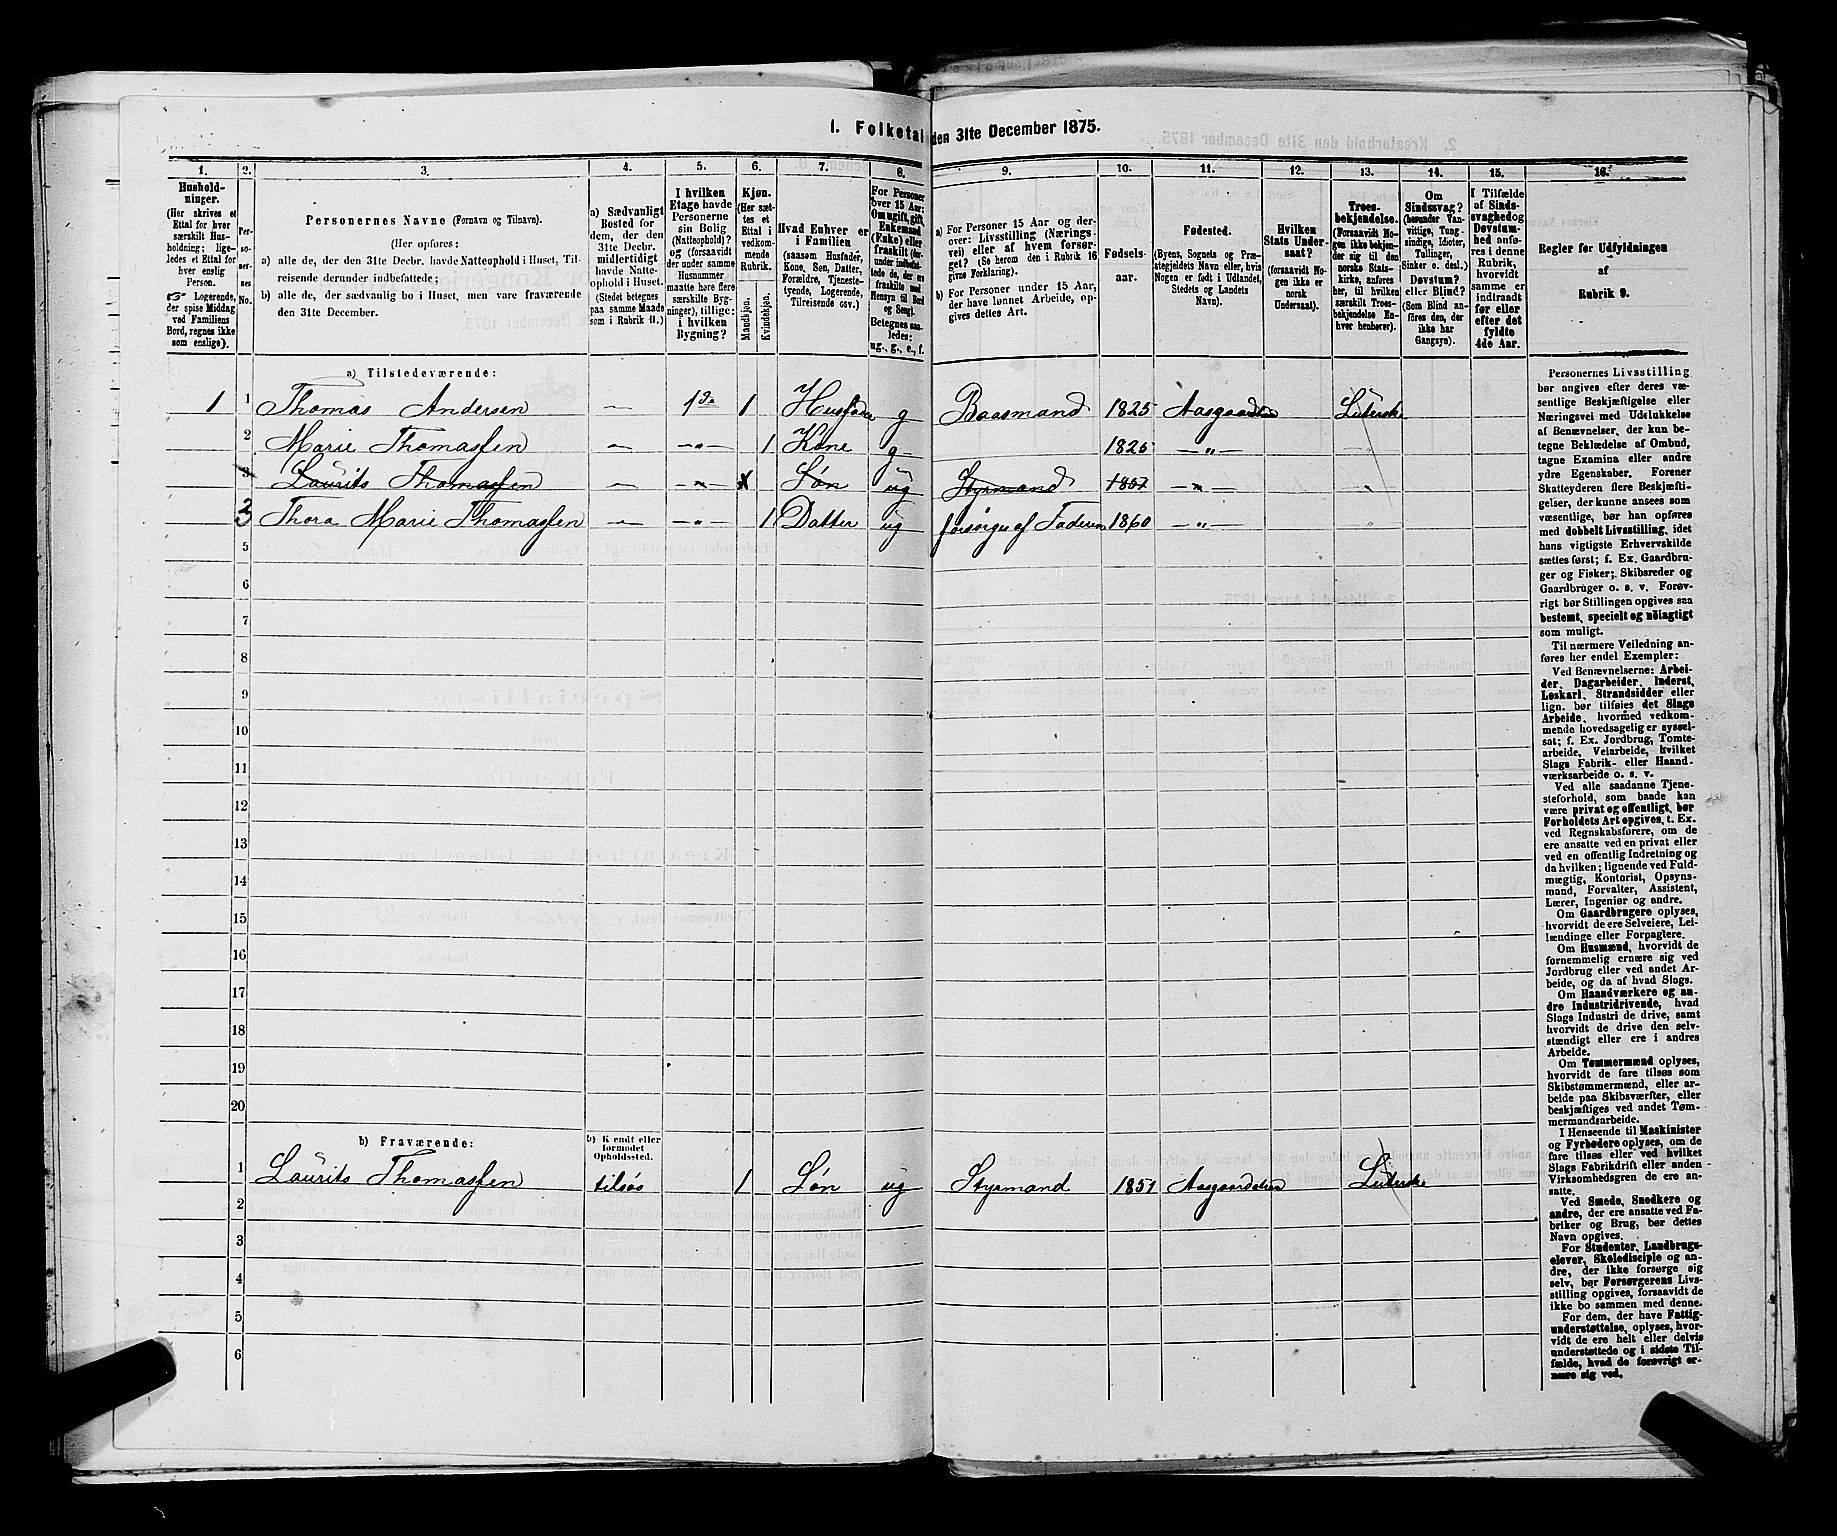 1. Folketal den 31te December 1875.
1. 2. 3. 4. 5. 6. 7. 8. 9. 10. 11. 12. 13. 14. 15. 16.
Hushold-
ninger.
(Her skrives et
Ettal for hver
særskilt Hus-
holdning; lige-
ledes et Ettal for
hver enslig
Person.
Logerende,
der spise Middag
ved Familiens
Bord, regnes ikke
som enslige).
Per-
so-
ner-
nes
No.
Personernes Navne (Fornavn og Tilnavn).
(Her opføres:
a) alle de, der den 31te Decbr. havde Natteophold i Huset, Til-
reisende derunder indbefattede;
b) alle de, der sædvanlig bo i Huset, men vare fraværende
den 31te December.
a) Sædvanligt
Bosted for
dem, der den
31te Decbr.
midlertidigt
havde Natte-
ophold i Huset.
(Stedet betegnes
paa samme Maade
som i Rubrik 11.)
I hvilken
Etage havde
Personerne
sin Bolig
(Natteophold)?
og (forsaavidt
der under samme
Husnummer
maatte høre flere
særskilte Byg-
ninger), tillige:
i hvilken
Bygning?
Kjøn.
(Her sæt-
tes et
Ettal i
vedkom-
mende
Rubrik.
Mandkjøn.
Kvindekjøn.
Hvad Enhver er
i Familien
(saasom Husfader,
Kone, Søn, Datter,
Forældre, Tjeneste-
tyende, Logerende,
Tilreisende osv.)
For Personer
over 15 Aar:
Om ugift, gift,
Enkemand
(Enke) eller
fraskilt (her-
under indbefat-
tede de, der ere
fraskilte med
Hensyn til Bord
og Seng).
Betegnes saa-
ledes:
ug., g., e., f.
a) For Personer 15 Aar og der-
over: Livsstilling (Nærings-
vei) eller af hvem forsør-
get? (Se herom den i Rubrik 16
givne Forklaring).
b) For Personer under 15 Aar,
der have lønnet Arbeide, op-
gives dettes Art.
Fødsels-
aar.
Fødested.
(Byens, Sognets og Præ-
stegjeldets Navn eller, hvis
Nogen er født i Udlandet,
Stedets og Landets
Navn).
Hvilken
Stats Under-
saat?
(forsaavidt No-
gen ikke er
norsk
Undersaat).
Troes-
bekjendelse.
(Forsaavidt No-
gen ikke bekjen-
der sig til den
norske Stats-
kirke, anføres
her, til hvilken
særskilt Troes-
bekjendelse En-
hver henhører).
Om
Sindssvag?
(herunder Van-
vittige, Tung-
sindige, Idioter,
Tullinger,
Sinker o. desl.)
Døvstum?
eller Blind?
(Som Blind an-
føres den, der
ikke har
Gangsyn).
I Tilfælde
af Sinds-
svaghed og
Døvstum-
hed anfø-
res i denne
Rubrik,
hvorvidt
samme er
indtraadt
før eller
efter det
fyldte
4de Aar.
Regler for Udfyldningen
af
Rubrik 9.
a) Tilstedeværende:
1 1 Thomas Andersen — 1 1 Husfader g Baasmand 1825 Aasgaardstrn Luterske
2 Marie Thomassen — —"— 1 Kone g 1825 —"— "
3 Laurits Thomassen — —"— 1 Søn ug Styrmand 1851 —"— "
3 Thora Marie Thomassen — —"— 1 Datter ug forsörges af Faderen 1860 —"— "
5
6
7
8
9
10
11
12
13
14
15
16
17
18
19
20
b) Fraværende:
b) Kendt eller
formodet
Opholdssted.
1 Laurits Thomassen tilsøs 1 Søn ug Styrmand 1851 Aasgaardstrn Luterske
2
3
4
5
6
Personernes Livsstilling
bør angives efter deres væ-
sentlige Beskjæftigelse eller
Næringsvei med Udelukkelse
af Benævnelser, der kun be-
tegne Beklædelse af Ombud,
tagne Examina eller andre
ydre Egenskaber. Forener
Skatteyderen flere Beskjæfti-
gelser, der kunne ansees som
væsentlige, bør han opføres
med dobbelt Livsstilling, idet
hans vigtigste Erhvervskilde
sættes først; f. Ex. Gaardbru-
ger og Fisker; Skibsreder og
Gaardbruger o. s. v. Forøv-
rigt bør Stillingen opgives saa
bestemt, specielt og nöiagtigt
som muligt.
Til nærmere Veiledning an-
føres her endel Exempler:
Ved Benævnelserne: Arbei-
der, Dagarbeider, Inderst,
Løskarl, Strandsidder eller
lign. bør tilføies det Slags
Arbeide, hvormed vedkom-
mende hovedsagelig er syssel-
sat; f. Ex. Jordbrug, Tomte-
arbeide, Veiarbeide, hvilket
Slags Fabrik- eller Haand-
værksarbeide o. s. v.
Ved alle saadanne Tjene-
steforhold, som baade kan
være privat og offentligt, bør
Forholdets Art opgives, t. Ex.
ved Regnskabsførere, om de
ere ansatte ved en privat eller
ved en offentlig Indretning og
da hvilken; lignende ved Fuld-
mægtig, Kontorist, Opsyns-
mand, Forvalter, Assistent,
Lærer, Ingeniør og andre.
Om Gaardbrugere oplyses,
hvorvidt de ere Selveiere, Lei-
lændinge eller Forpagtere.
Om Husmænd, hvorvidt de
fornemmelig ernære sig ved
Jordbrug eller ved andet Ar-
beide, og da af hvad Slags.
Om Haandværkere og an-
dre Industridrivende, hvad
Slags Industri de drive, samt
hvorvidt de drive den selv-
stændigt eller ere i andres
Arbeide.
Om Tømmermænd oplyses,
hvorvidt de fare tilsøs som
Skibstømmermænd, eller ar-
beide paa Skibsværfter, eller
beskjæftiges ved andet Tøm-
mermandsarbeide.
I Henseende til Maskinister
og Fyrbødere oplyses, om de
fare tilsøs eller ved hvilket
Slags Fabrikdrift eller anden
Virksomhedsgren de ere an-
satte.
Ved Smede, Snedkere og
andre, der ere ansatte ved Fa-
briker og Brug, bør dettes
Navn opgives.
For Studenter, Landbrugs-
elever, Skoledisciple og an-
dre, der ikke forsørge sig
selv, bør Forsørgerens Livs-
stilling opgives, forsaavidt de
ikke bo sammen med denne.
For dem, der have Fattig-
understøttelse, oplyses, hvor-
vidt de ere helt eller delvis
understøttede og i sidste Til-
fælde, hvad de forøvrigt er-
nære sig ved.